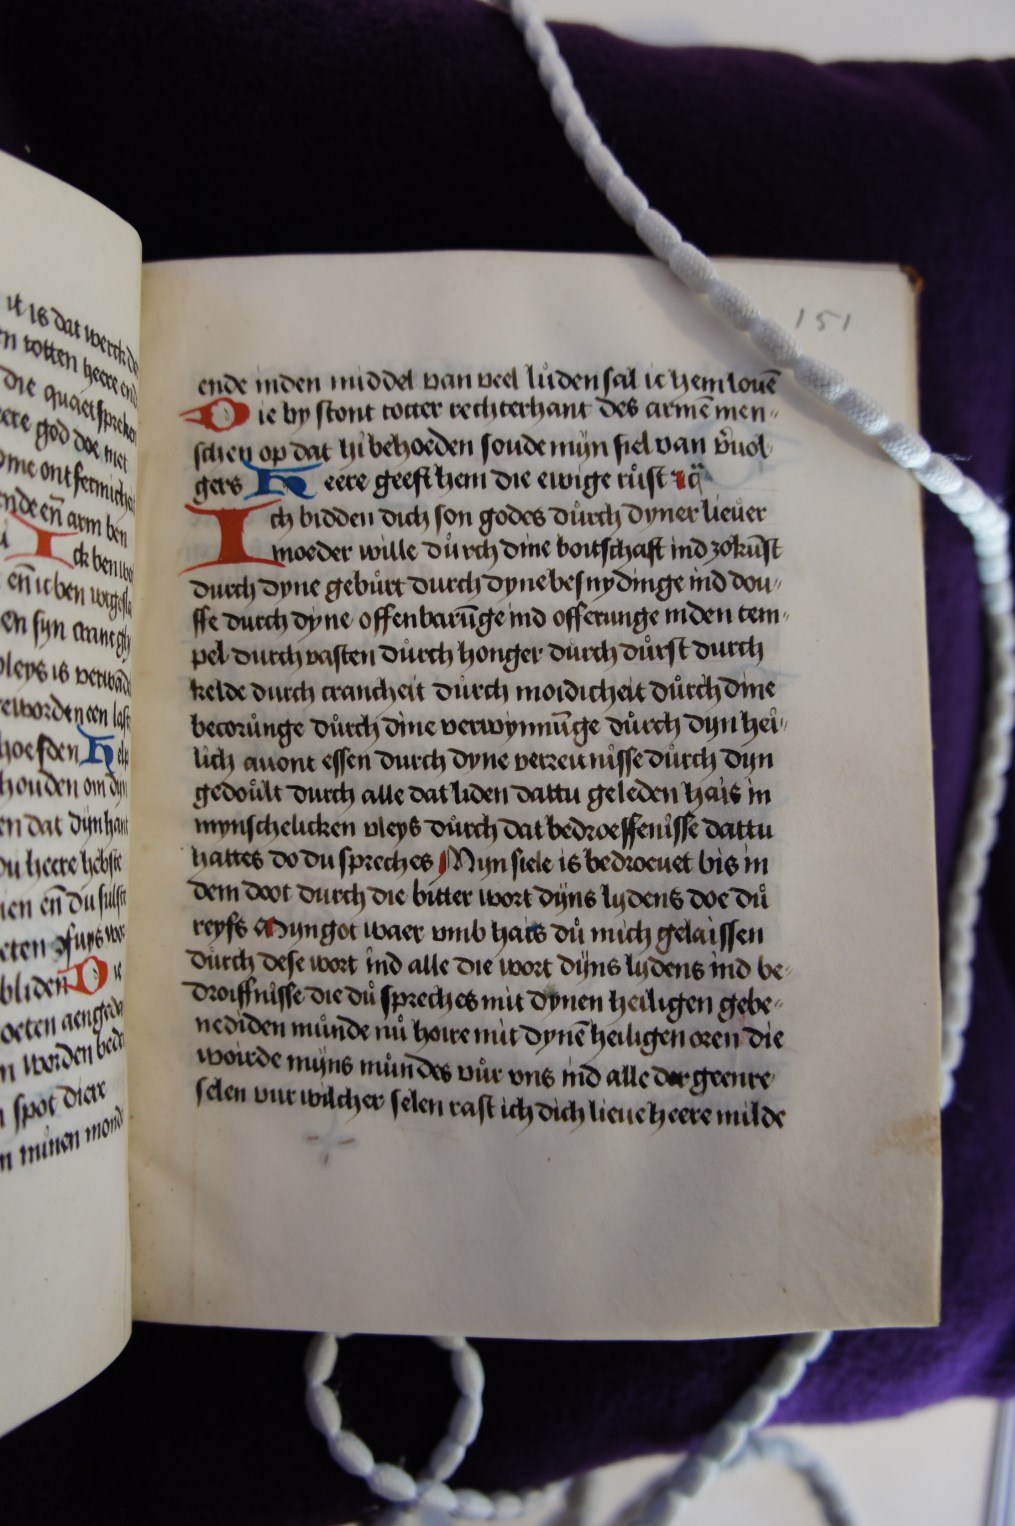 it is dat werck
en totten heere
die quaetspreken
heere god doe met
ome ontfermich
ende eñ arm ben
Ick ben
eñ ic ben
en syn
vleys is
geworden een
hoefden Help
houden om dyn
en dat dijn hant
du heere hebste
eñ du sulste
bliden Die
oeten
n worden
spot diere
n minen monde
151
ende inden middel van veel lůden sal ic hem louē
Die by stont totter rechterhant des armē men-
schen op dat hi behoeden soude mijn siel van v̄uol
gers Heere geeft hem die ewige růst
Ich bidden dich son godes důrch dyner lieuer
moeder wille důrch dine boitschaft ind zokūst
durch dyne gebůrt durch dyne besnydinge ind dou-
ffe durch dyne offenbarūge ind offerunge inden tem-
pel durch vasten důrch honger durch důrst durch
kelde durch crancheit důrch moidicheit důrch dine
becorůnge důrch dine verwynnūge důrch dyn hei-
lich auont essen durch dyne verzeunisse důrch dijn
gedoůlt durch alle dat liden dattu geleden hais in
mynschelicken vleys důrch dat bedroeffenisse dattu
hattes do du spreches Myn siele is bedroeuet bis in
dem doot durch die bitter wort dijns lydens doe dů
reyfs Myn got waer vmb hais dů mich gelaissen
důrch dese wort ind alle die wort dijns lydens ind be-
droiffnisse die dů spreches mit dynen heiligen gebe-
nediden můnde nů hoire mit dynē heiligen oren die
woirde mijns můndes vůr vns ind alle der geenre
selen vur wilcher selen rast ich dich lieue heere milde